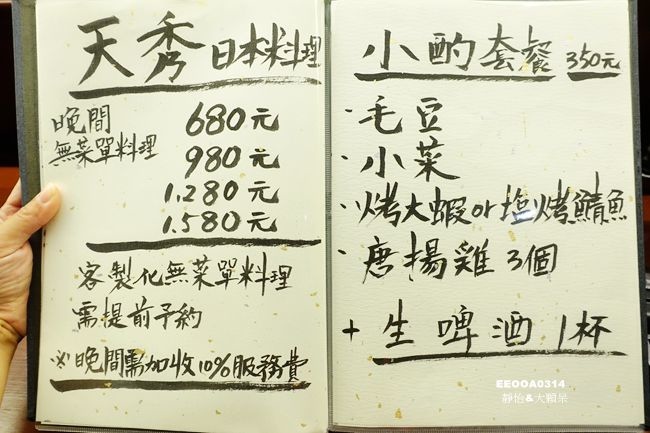 天秀 日本料理
晚間 680元
無菜單料理 980元
1.280元
1.580元
客製化無菜單料理
需提前予約
※晚間需加收10%服務費
小酌套餐 350元
·毛豆
·小菜
·烤大蝦or塩烤鯖魚
·唐揚雞3個
+生啤酒1杯
EEOOA0314
靜怡&大顆呆